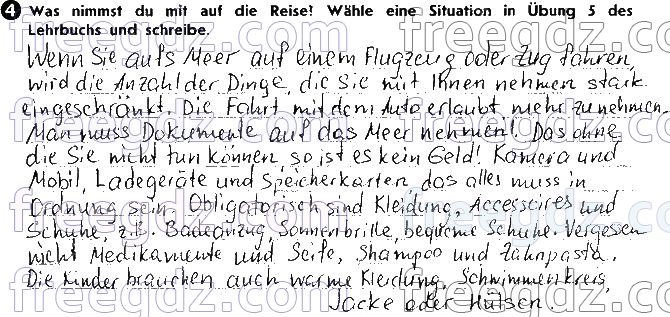 4 Was nimmst du mit auf die Reise? Wähle eine Situation in Übung 5 des
Lehrbuchs und schreibe.
Wenn Sie aufs Meer auf einem Flugzeug oder Zug fahren,
wird die Anzahl der Dinge, die Sie mit Ihnen nehmen stark
eingeschränkt. Die Fahrt mit dem Auto erlaubt mehr zu nehmen.
Man muss Dokumente auf das Meer nehmen! Das ohne
die Sie nicht tun können, so ist es kein Geld! Kamera und
Mobil, Ladegeräte und Speicherkarten, das alles muss in
Ordnung sein. Obligatorisch sind Kleidung, Accessoires und
Schuhe, z.B. Badeanzug, Sonnenbrille, bequeme Schuhe. Vergessen
nicht Medikamente und Seife, Shampoo und Zahnpasta.
Die Kinder brauchen auch warme Kleidung, Schwimmenkreis,
Jacke oder Hülsen.
freegdz.com